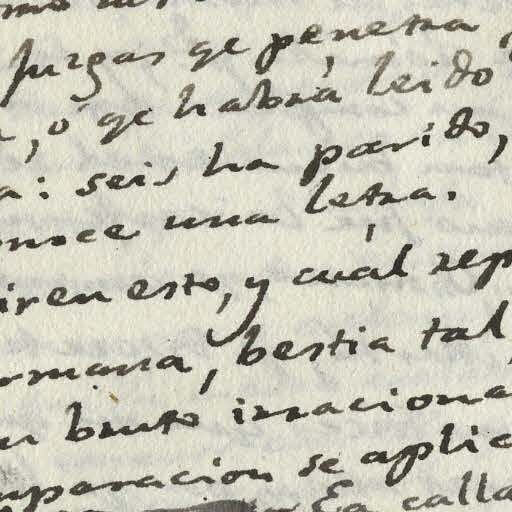 juzgas qe penetra
, ó qe habrá leido
a: seis ha parído,
onoce una letra.
iren esto, y cuál rep
rmana, bestia tal,
un bruto irraciona
mparacion se aplic
Ea calla